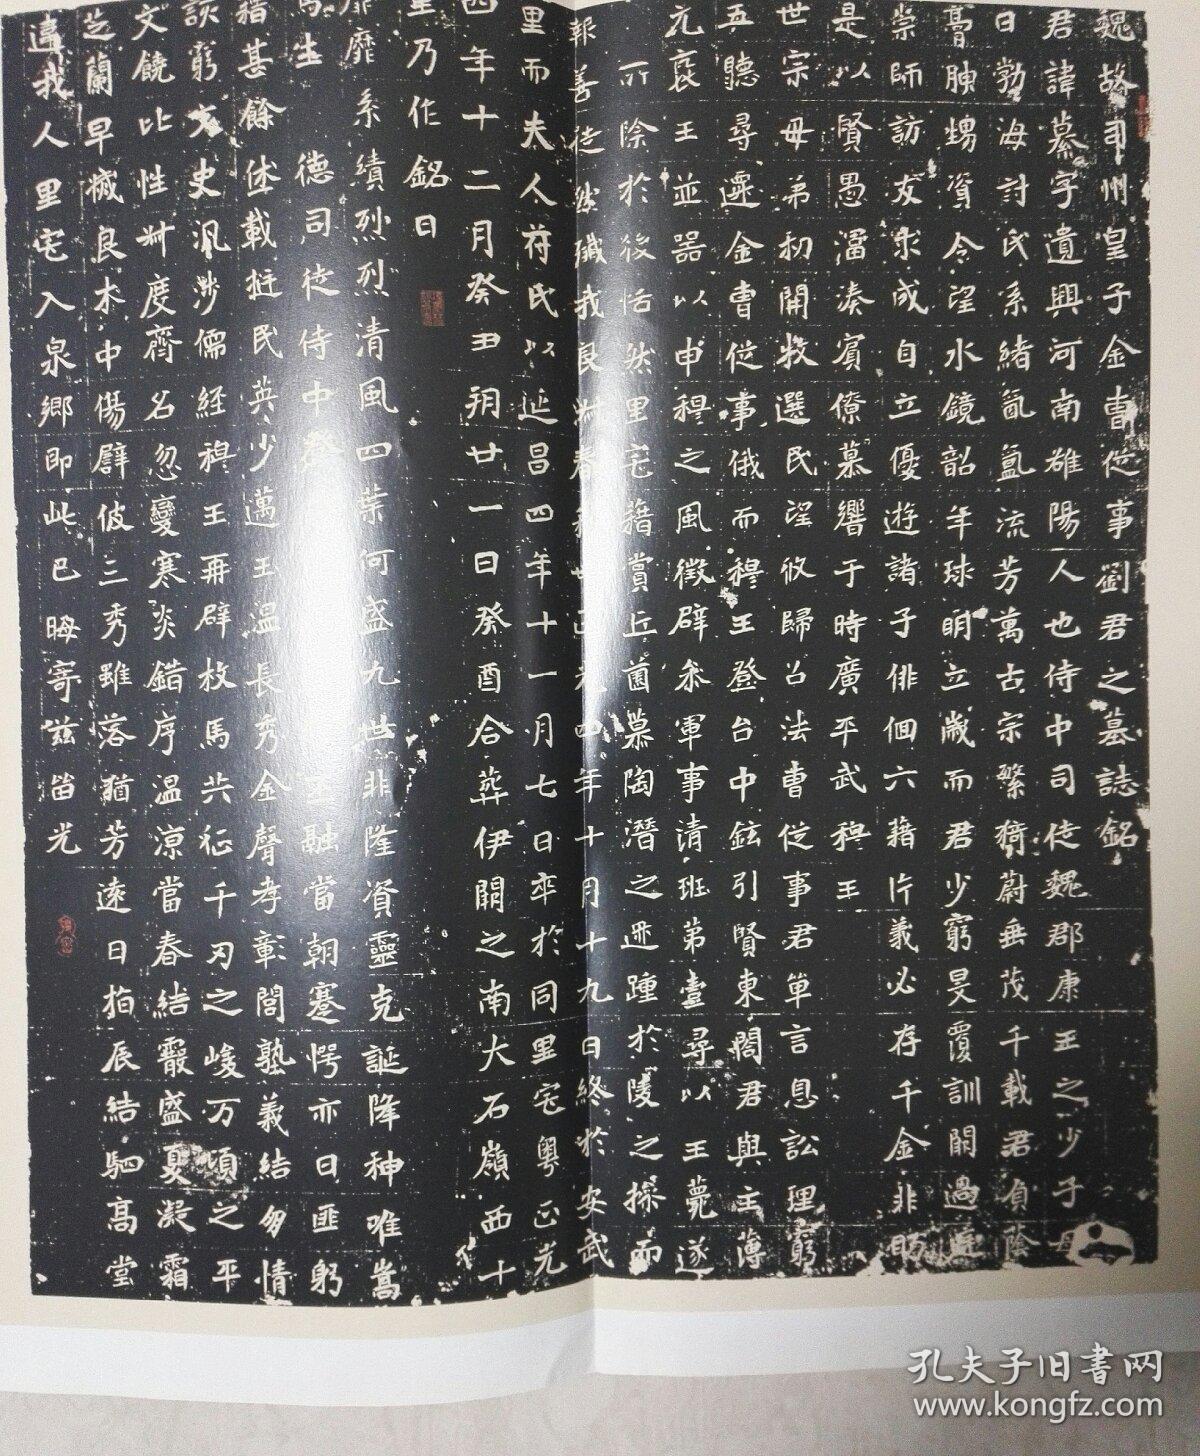 魏故司州皇子金曹從事劉君之墓誌銘
君諱 字遺興河南雒陽人也侍中司徒魏郡康王之少子母
曰勃海封氏系緒氤氳流芳萬古宗繁猗蔚垂茂千載君 陰
甥資令望水鏡韶年球明立歲而君少窮旻覆訓闕過庭
崇師訪友求成自立優遊諸子俳佪六藉片義必存千金非
是以賢愚湊賓僚慕響于時廣平武穆王
世宗母弟初開牧選民望攸歸召法曹從事君單言息訟理窮
五聽尋遷金曹從事俄而穆王登台中鉉引賢東閣君與主薄
元襄王並器以申穆之風徵辟 軍事清班第壹尋以王薨遂
所除於後恬然里宅籍賞丘 慕陶潛之 踵於陵之操而
報善徒然殲我良 春 正光四年十月十九日終於安武
里而夫人苻氏以延昌四年十一月七日卒於同里宅粵正光
四年十二月癸丑朔廿一日癸酉合葬伊闕之南大石嶺西十
里乃作銘曰
靡系績烈烈清風四葉何盛九世非隆資靈克誕降神唯嵩
生 德司徒侍中 王融當朝蹇愕亦曰匪躬
甚餘 載挺民英少邁王溫長秀金聲孝彰閭塾義結 情
談窮文史汎涉儒經穆王再辟枚馬共征千刃之峻万頃之平
文饒比性 度齊名忽變寒炎錯序溫涼當春結霰盛夏凝霜
芝蘭早摧良木中傷 三秀雖落猶芳遠日 辰結駟高堂
違我人里宅入泉鄉即此 晦寄茲 光
孔夫子旧書网
www.kongfz.com